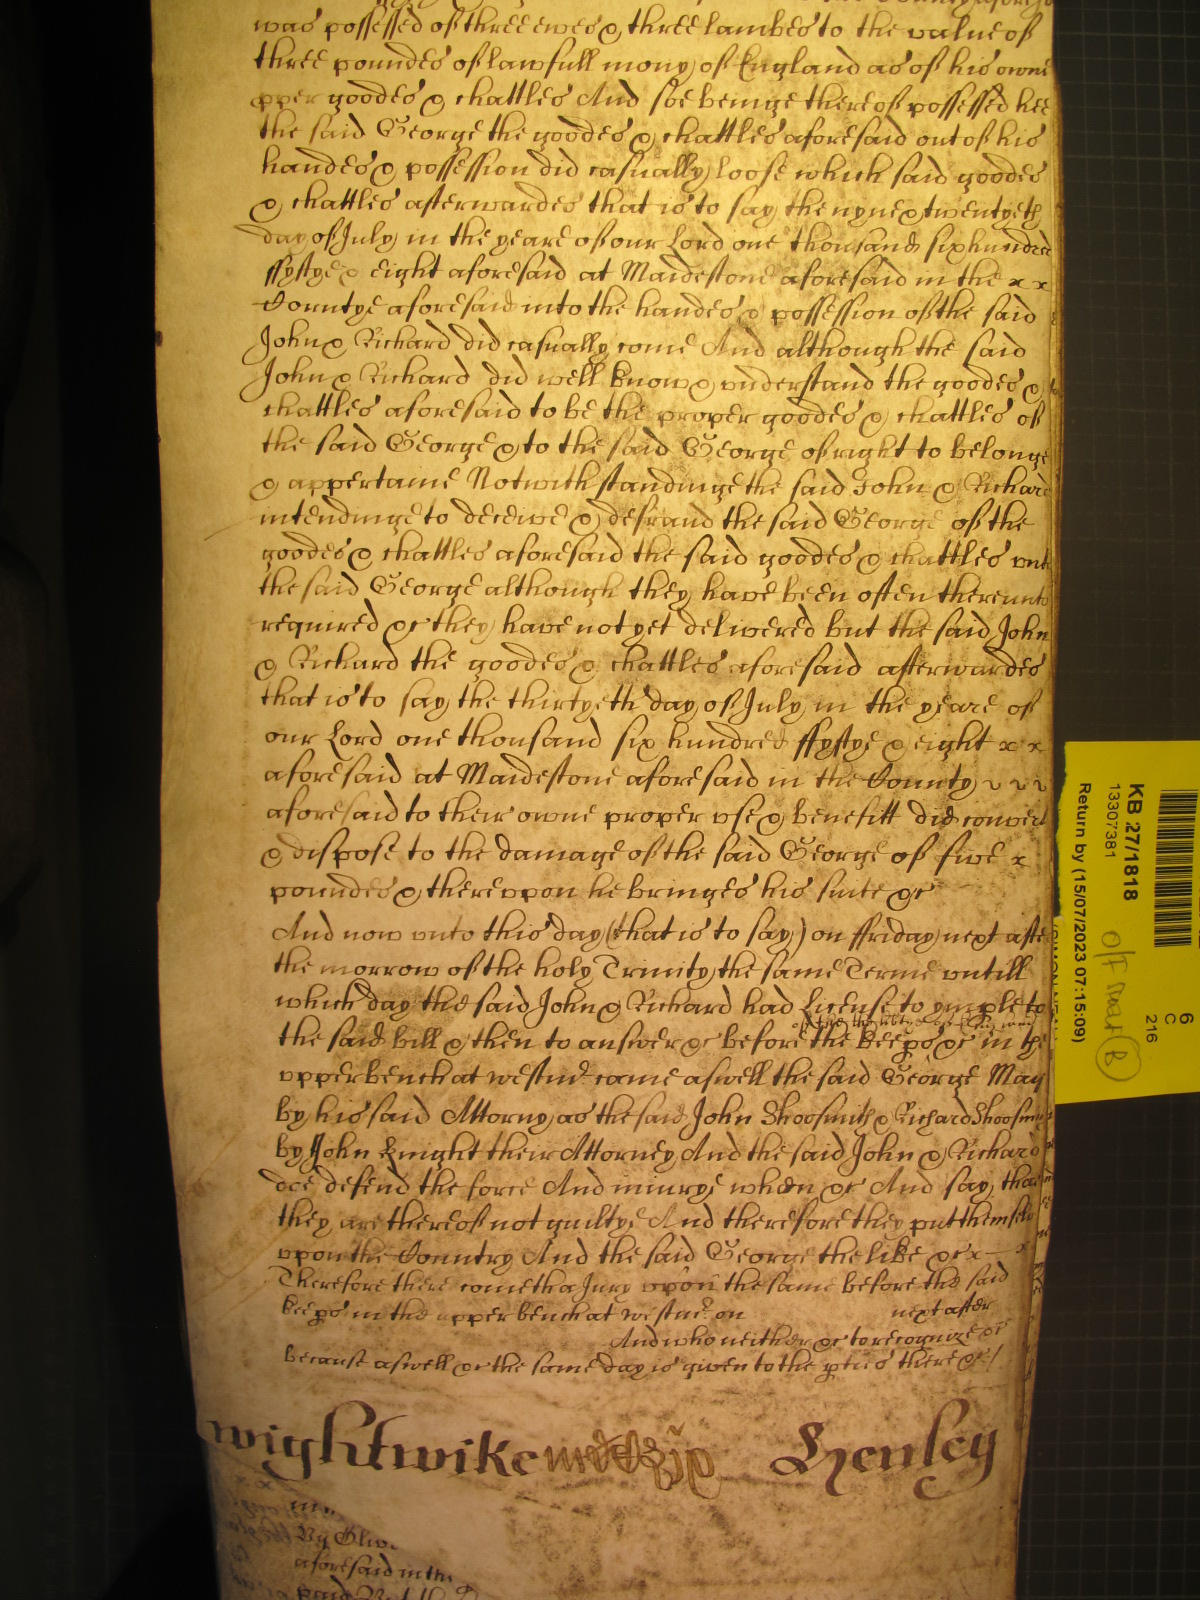 was possessed of three ewes & three lambes to the value of
three poundes of lawfull mony of England as of his owne
pper goodes & chattles And soe beinge thereof possessed hee
the said George the goodes & chattles aforesaid out of his
handes & possession did casually loose which said goodes
& chattles afterwardes that is to say the nyne & twentyeth
day of July in the yeare of our Lord one thousand six hundred
ffyftye & eight aforesaid at Maidestone aforesaid in the x x
Countye aforesaid into the handes & possession of the said
John & Richard did casually come And although the said
John & Richard did well know & vnderstand the goodes &
chattles aforesaid to be the proper goodes & chattles of
the said George & to the said George of right to belonge
& appertaine Notwithstandinge the said John & Richard
intendinge to deceive & defraud the said George of the
goodes & chattles aforesaid the said goodes & chattles vnto
the said George although they have been often therevnto
required &c they have not yet delivered but the said John
& Richard the goodes & chattles aforesaid afterwardes
that is to say the thirtyeth day of July in the yeare of
our Lord one thousand six hundred ffyftye & eight x x
aforesaid at Maidestone aforesaid in the County
aforesaid to their owne proper vse & benefitt did convert
& dispose to the damage of the said George of five x
poundes & therevpon he bringes his suite &c
And now vnto this day (that is to say) on ffriday next after
the morrow of the holy Trinity the same Terme vntill
which day the said John & Richard had License to ymple to
the said bill & then to answer &c before the keeps &c in the
vpper bench at westmr came aswell the said George May
by his said Attorny as the said John Shoosmith & Richard Shoosmith
by John Knight their Attorney And the said John & Richard
doe defend the force And iniurye when &c And say that
they are thereof not guiltye And therefore they put themselves
vpon the Country And the said George the like &c x x
Therefore there cometh a Jury vpon the same before the said
keeps in the vpper bench at westmr on next after
And who neither &c to recognize &c
Because aswell &c the same day is given to the pties there &c /
wightwike Henley
By Oliv
aforesaid in the
paid But the
KB 27/1818
13307381
Return by (15/07/2023 07:15:09)
6
C
216
B